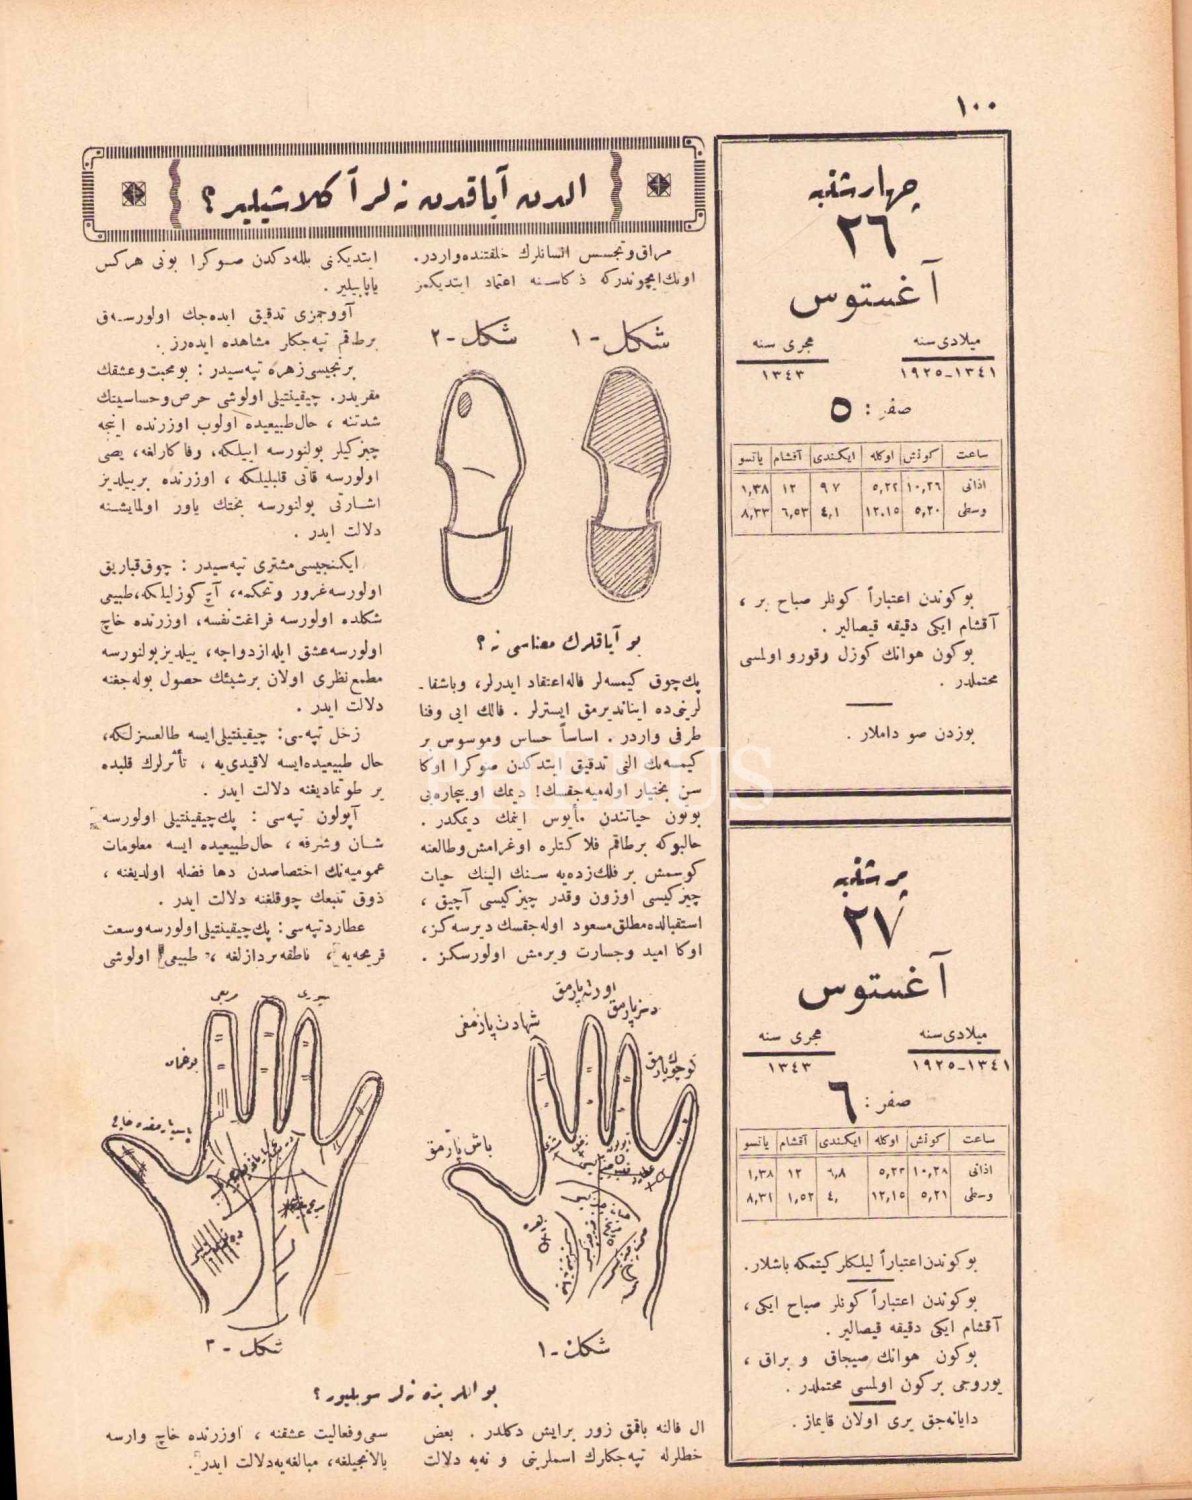 ١٠٠
چهارشنبه
٢٦
آغستوس
میلادی سنه
١٣٤١-١٩٢٥
هجری سنه
١٣٤٣
صفر : ٥
ساعت کونش اوکله ایکندی آقشام یاتسو
اذانی ١٠,٢٦ ٥,٢٢ ٩ ٧ ١٢ ١,٣٨
وسطی ٥,٢٠ ١٢.١٥ ٤,١ ٦,٥٣ ٨,٣٣
بو کوندن اعتباراً کونلر صباح بر ،
آقشام ایکی دقیقه قیصالیر .
بوکون هوانك کوزل وقورو اولمسی
محتملدر .
بوزدن صو داملار .
پرشنبه
٢٧
آغستوس
میلادی سنه
١٣٤١-١٩٢٥
هجری سنه
١٣٤٣
صفر : ٦
ساعت کونش اوکله ایکندی آقشام یاتسو
اذانی ١٠,٢٨ ٥,٢٣ ٦,٨ ١٢ ١,٣٨
وسطی ٥,٢١ ١٢,١٥ ٤, ١,٥٢ ٨,٣١
بو کوندن اعتباراً لیلکلر کیتمکه باشلار.
بو کوندن اعتباراً کونلر صباح ایکی ،
آقشام ایکی دقیقه قیصالیر .
بوکون هوانك صیجاق و براق ،
یوروجی برکون اولمسی محتملدر .
دایانه‌جق یری اولان قایماز .
الدن آیاقدن نه‌لر آکلاشیلیر ؟
مراق وتجسس انسانلرك خلقتنده واردر.
اونك ایچوندرکه ذکاسنه اعتماد ایتدیکمز
شکل - ١
شکل - ٢
بو آیاقلرك معناسی نه ؟
پك چوق کیمسه‌لر فاله اعتقاد ایدرلر، وباشقا ـ
لرینی‌ده ایناندیرمق ایسترلر . فالك ایی وفنا
طرفی واردر . اساساً حساس وموسوس بر
کیمسه‌نك الفی تدقیق ایتدکدن صوکرا اوکا
سن بختیار اوله‌میه‌جقسك! دیمك او بیچاره‌یی
بوتون حیاتندن مأیوس ایتمك دیمکدر .
حالبوکه برطاقم فلاکتلره اوغرامش وطالعنه
کوسمش بر فلك‌زده‌یه سنك الینك حیات
چیزکیسی اوزون وقدر چیزکیسی آچیق ،
استقبالده مطلق مسعود اوله‌جقسك دیرسه‌کز،
اوکا امید وجسارت ویرمش اولورسکز .
اورته پارمق
شهادت پارمغی
باش پارمق
زهره
شکل - ١
بو اللر بزه نه‌لر سویلیور ؟
ال فالنه باقمق زور برایش دکلدر . بعض
خطلرله تپه‌جکلرك اسملرینی و نه‌یه دلالت
ایتدیکنی بلله‌دکدن صوکرا بونی هرکس
یاپابیلیر .
آووجمزی تدقیق ایده‌جك اولورسه‌ق
برطقم تپه‌جکلر مشاهده ایده‌رز .
برنجیسی زهره تپه‌سیدر : بو محبت وعشقك
مقریدر. چیقینتیلی اولوشی حرص وحساسیتك
شدتنه ، حال طبیعیده اولوب اوزرنده اینجه
چیزکیلر بولنورسه ایلیکه، وفاکارلغه، یصی
اولورسه قاتی قلبلیلکه ، اوزرنده بر ییلدیز
اشارتی بولنورسه بختك یاور اولمایشنه
دلالت ایدر .
ایکنجیسی مشتری تپه‌سیدر : چوق قباریق
اولورسه غرور وتحکمه، آچ کوزلیلکه، طبیعی
شکلده اولورسه فراغت نفسه، اوزرنده خاچ
اولورسه عشق ایله ازدواجه، ییلدیز بولنورسه
مطمع نظری اولان برشیئك حصول بوله‌جغنه
دلالت ایدر .
زحل تپه‌سی: چیقینتیلی ایسه طالعسزلکه،
حال طبیعیده ایسه لاقیدی‌یه ، تأثرلرك قلبده
یر طوتمادیغنه دلالت ایدر .
آپولون تپه‌سی : پك چیقینتیلی اولورسه
شان وشرفه ، حال طبیعیده ایسه معلومات
عمومیه‌نك اختصاصدن دها فضله اولدیغنه ،
ذوق تتبعك چوقلغنه دلالت ایدر .
عطارد تپه‌سی: پك چیقینتیلی اولورسه وسعت
قریحه‌یه ، ناطقه‌پردازلغه ، طبیعی اولوشی
شکل - ٢
سعی وفعالیت عشقنه ، اوزرنده خاچ وارسه
یالانجیلغه، مبالغه‌یه دلالت ایدر .
PHEBUS